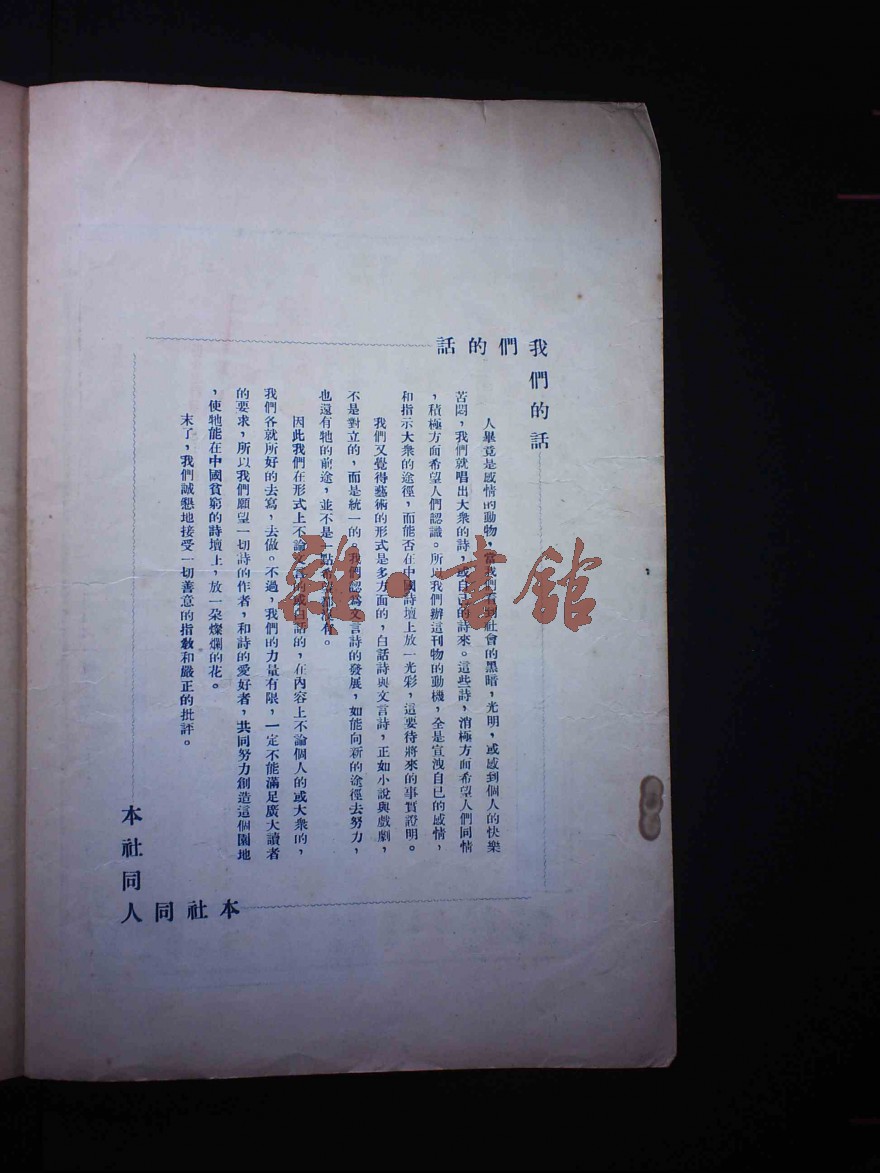 我們的話
我們的話
人畢竟是感情的動物，當我們看到社會的黑暗，光明，或感到個人的快樂
苦悶，我們就唱出大衆的詩，或自己的詩來。這些詩，消極方面希望人們同情
，積極方面希望人們認識。所以我們辦這刊物的動機，全是宣洩自已的感情，
和指示大衆的途徑，而能否在中國詩壇上放一光彩，這要待將來的事實證明。
我們又覺得藝術的形式是多方面的，白話詩與文言詩，正如小說與戲劇，
不是對立的，而是統一的。我們認爲文言詩的發展，如能向新的途徑去努力，
也還有牠的前途，並不是一點希望都沒有。
因此我們在形式上不論文言的或白話的，在內容上不論個人的或大衆的，
我們各就所好的去寫，去做。不過，我們的力量有限，一定不能滿足廣大讀者
的要求，所以我們願望一切詩的作者，和詩的愛好者，共同努力創造這個園地
，使牠能在中國貧窮的詩壇上，放一朵燦爛的花。
末了，我們誠懇地接受一切善意的指敎和嚴正的批評。
本社同人
本社同人
雜·書館